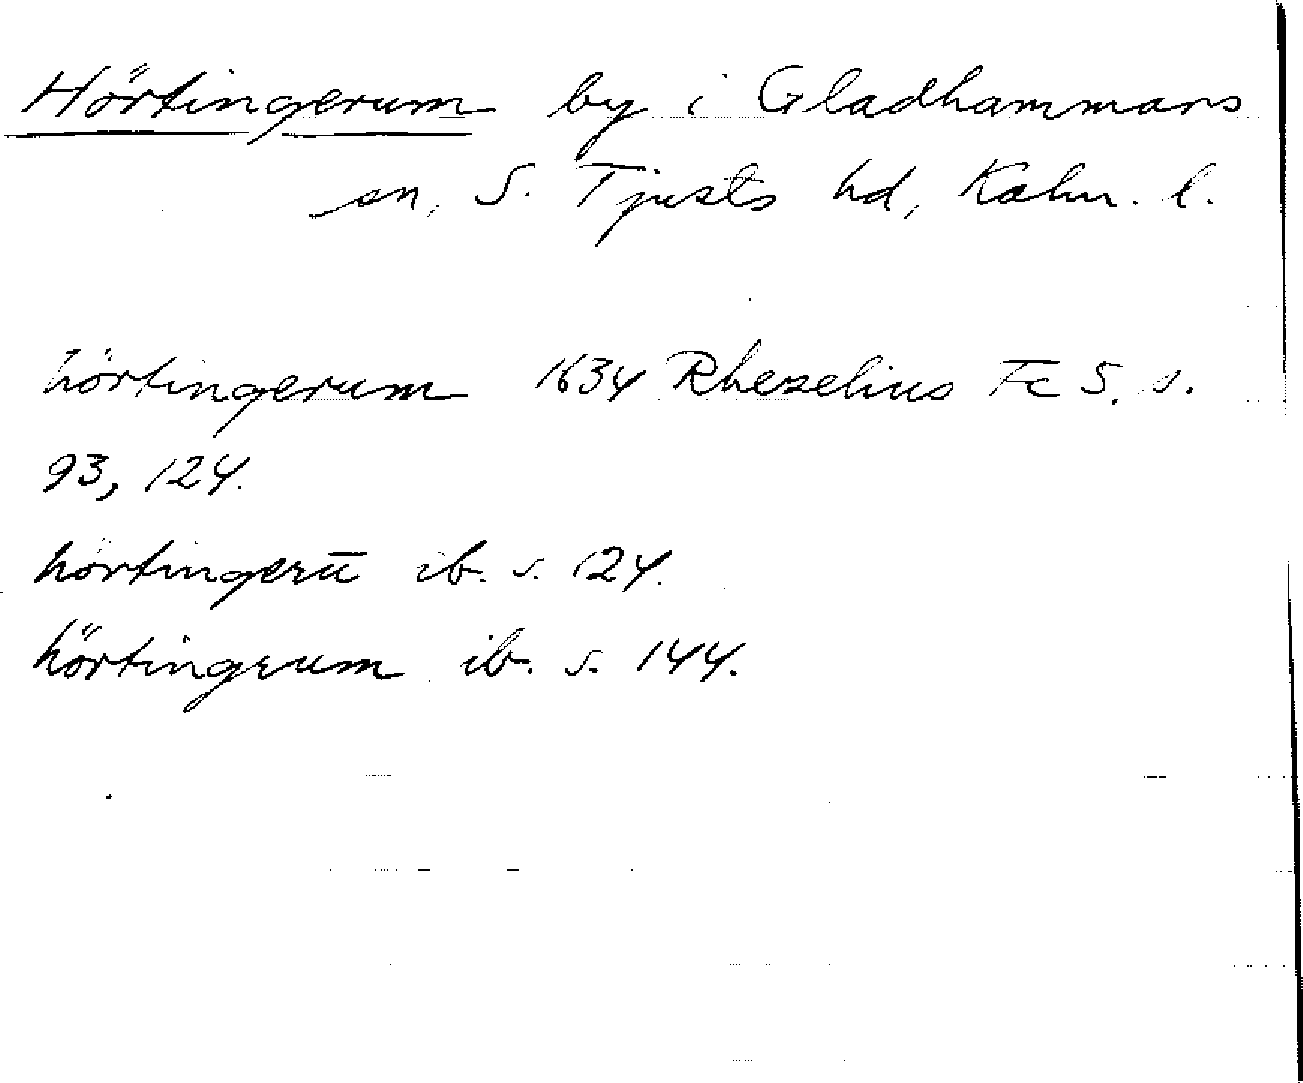 Hörtingerum by i Gladhammars
sn, S. Tjusts hd, Kalm. l.
hörtingerum 1634 Rhezelius Fc 5, s.
93, 124.
hörtingerū ib. s. 124.
hörtingrum ib. s. 144.